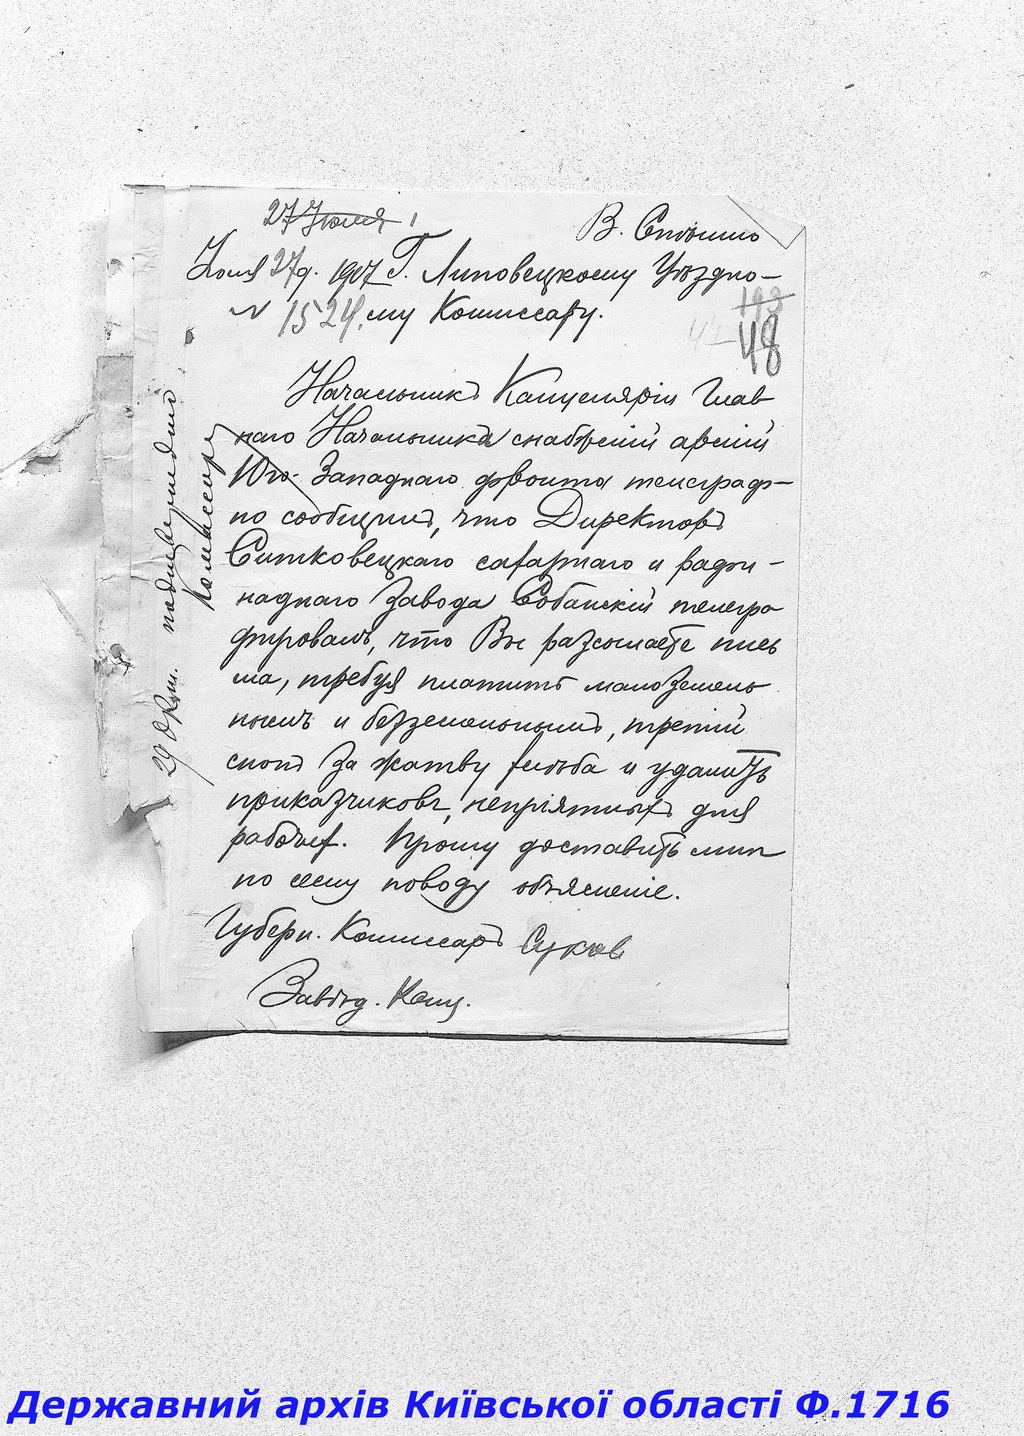 27 Июля
В. Спѣшно
Июля 27д. 1917 Г. Липовецкому Уѣздно-
N 1524. му Комиссару.
193
48
Начальникъ Канцеляріи Глав
наго Начальника снабженій армій
Юго-Западнаго фронта телеграф-
но сообщилъ, что Директоръ
Ситковецкаго сахарнаго и рафи-
наднаго Завода Собанскій телегра
фировалъ, что Вы разсылаете пись
ма, требуя платить малоземель
нымъ и безземельнымъ, третій
снопъ за жатву хлѣба и удалить
приказчиковъ, непріятныхъ для
рабочихъ. Прошу доставить мнѣ
по сему поводу объясненіе.
Губерн. Комиссаръ Суков
Завѣд. Канц.
29 Окт. подтверждено
Комиссару
Державний архів Київської області Ф.1716